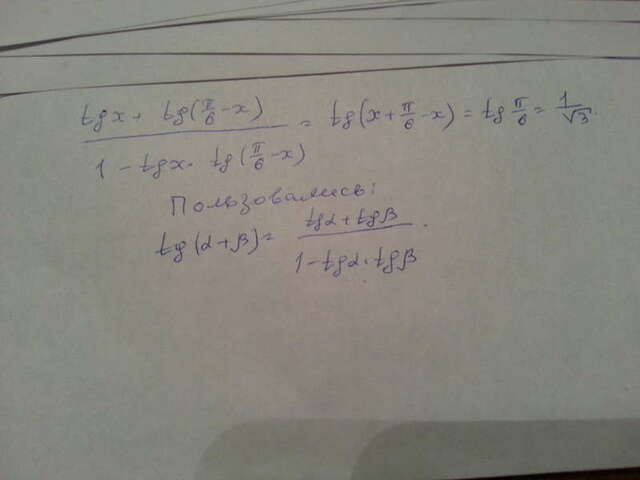 (tg x + tg(π/6 - x)) / (1 - tg x · tg(π/6 - x)) = tg(x + π/6 - x) = tg π/6 = 1/√3.
Пользовались:
tg(α + β) = (tgα + tgβ) / (1 - tgα · tgβ).